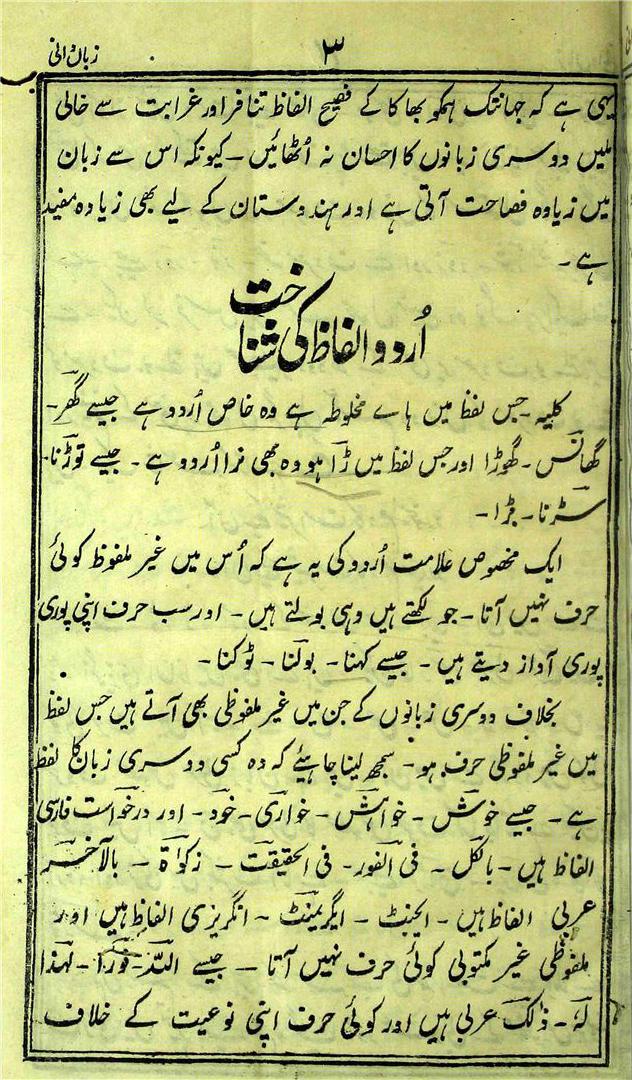 زبان دانی
۳
یہی ہے کہ جہانتک ہمکو بھاکا کے فصیح الفاظ تنافر اور غرابت سے خالی
ملیں دوسری زبانوں کا احسان نہ اُٹھائیں ۔ کیونکہ اس سے زبان
میں زیادہ فصاحت آتی ہے اور ہندوستان کے لیے بھی زیادہ مفید
ہے ۔
اُردو الفاظ کی شناخت
کلیہ ۔ جس لفظ میں ہاے مخلوطہ ہے وہ خاص اُردو ہے جیسے گھر ۔
گھانس ۔ گھوڑا اور جس لفظ میں ڑا ہو وہ بھی نرا اُردو ہے ۔ جیسے توڑنا ۔
سڑنا ۔ بڑا ۔
ایک مخصوص علامت اُردو کی یہ ہے کہ اُس میں غیر ملفوظ کوئی
حرف نہیں آتا ۔ جو لکھتے ہیں وہی بولتے ہیں ۔ اور سب حرف اپنی پوری
پوری آواز دیتے ہیں ۔ جیسے کہنا ۔ بولنا ۔ ٹوکنا ۔
بخلاف دوسری زبانوں کے جن میں غیر ملفوظی بھی آتے ہیں جس لفظ
میں غیر ملفوظی حرف ہو ۔ سمجھ لینا چاہیئے کہ وہ کسی دوسری زبان کا لفظ
ہے ۔ جیسے خوش ۔ خواہش ۔ خواری ۔ خود ۔ اور درخواست فارسی
الفاظ ہیں ۔ بالکل ۔ فی الفور ۔ فی الحقیقت ۔ زکواۃ ۔ بالآخر
عربی الفاظ ہیں ۔ ایجنٹ ۔ ایگریمنٹ ۔ انگریزی الفاظ ہیں اور
ملفوظی غیر مکتوبی کوئی حرف نہیں آتا ۔ جیسے اللہ ۔ فوراً ۔ لہٰذا
لہٗ ۔ ذٰلک عربی ہیں اور کوئی حرف اپنی نوعیت کے خلاف